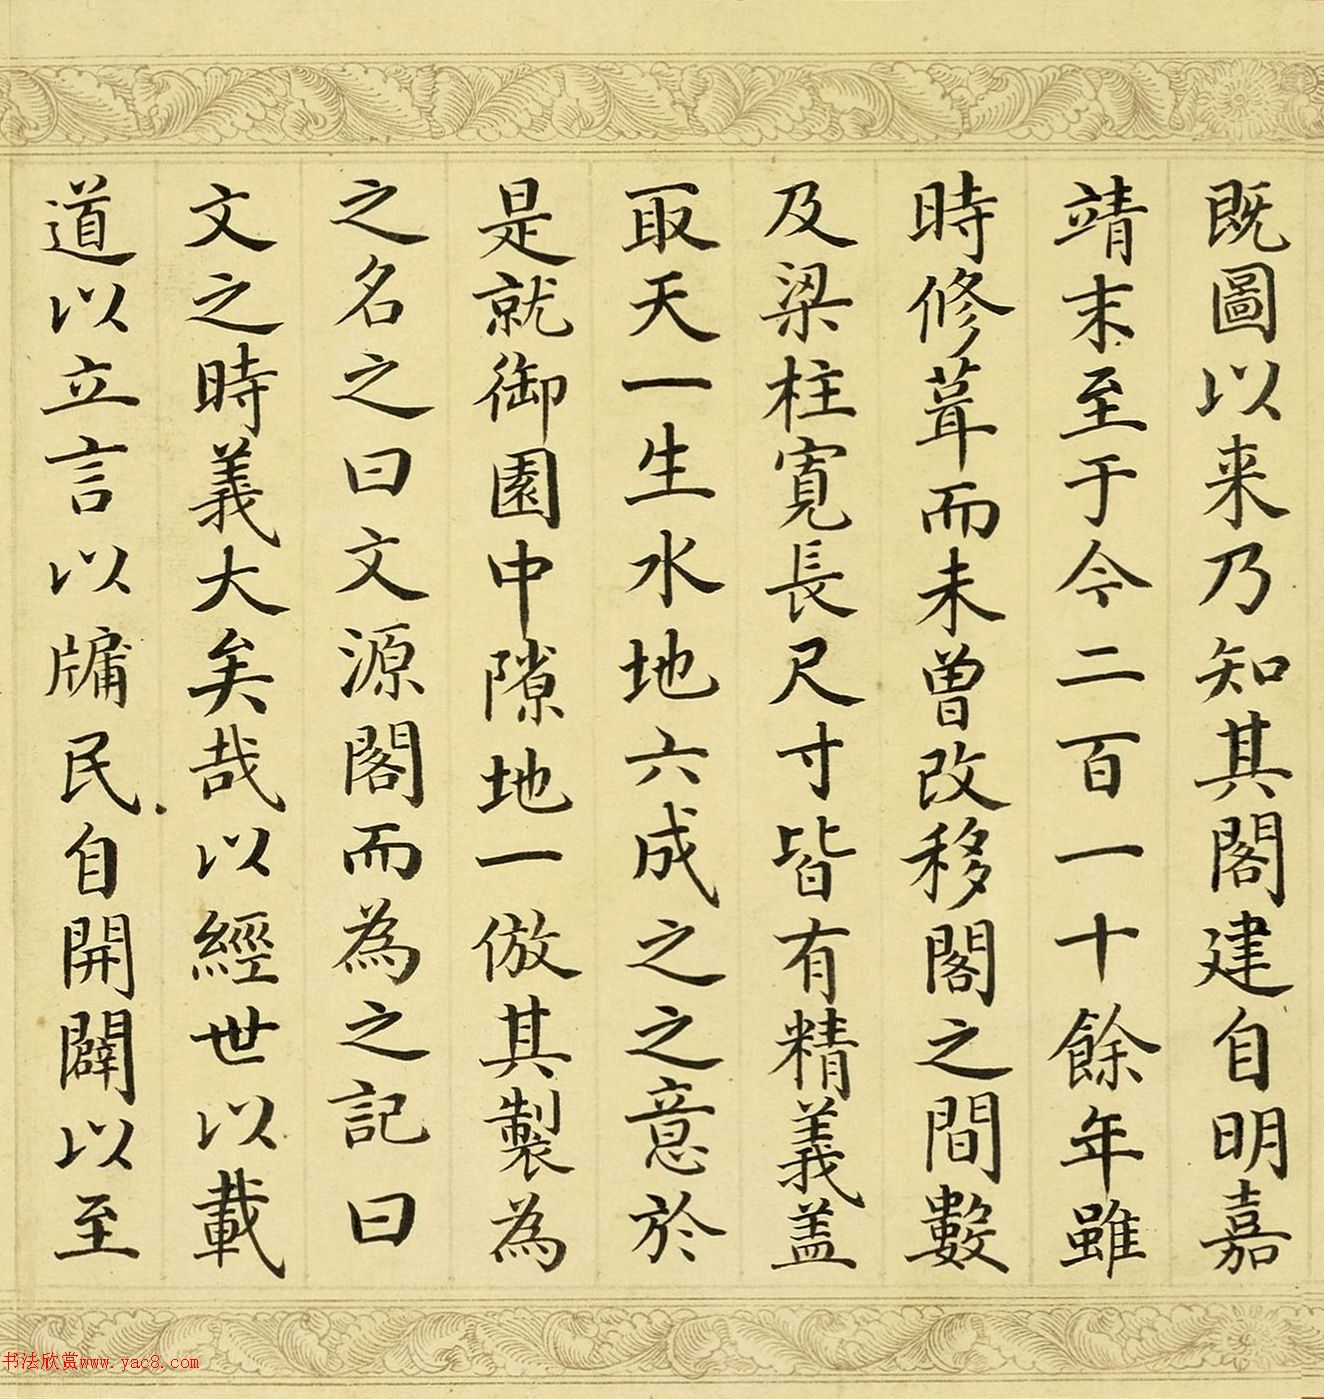 既圖以来乃知其閣建自明嘉
靖末至于今二百一十餘年雖
時修葺而未曽改移閣之間數
及梁柱寛長尺寸皆有精義盖
取天一生水地六成之之意於
是就御園中隙地一倣其製為
之名之曰文源閣而為之記曰
文之時義大矣哉以經世以載
道以立言以牖民自開闢以至
书法欣赏www.yac8.com